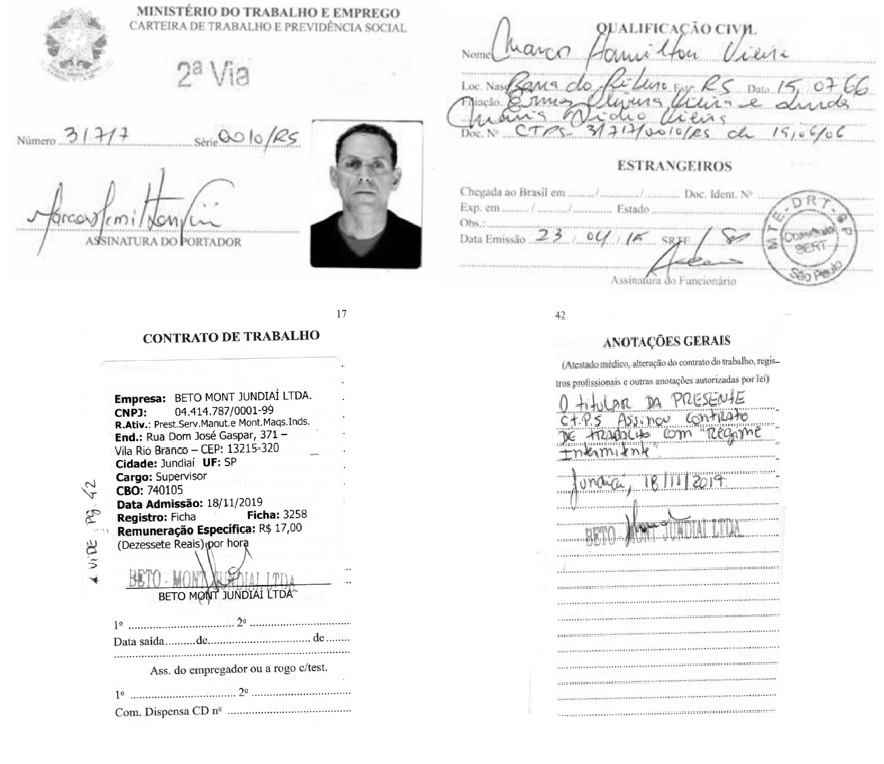 MINISTÉRIO DO TRABALHO E EMPREGO
CARTEIRA DE TRABALHO E PREVIDÊNCIA SOCIAL
2ª Via
Número 31717 Série 0010/RS
ASSINATURA DO PORTADOR
QUALIFICAÇÃO CIVIL
Nome Marco Hamilton Vieira
Loc. Nas. Barra do Ribeiro Est. RS Data 15 07 66
Filiação. Oliveira Vieira e
Maria Vieira
Doc. Nº CTPS 31717/0010/RS de 19/04/06
ESTRANGEIROS
Chegada ao Brasil em ......../......../........ Doc. Ident. Nº
Exp. em ......../......../........ Estado
Obs.:
Data Emissão 23 / 04 / 15 SRTE/ SP
Assinatura do Funcionário
MTE-DRT-SP
SERT
São Paulo
17
CONTRATO DE TRABALHO
Empresa: BETO MONT JUNDIAÍ LTDA.
CNPJ: 04.414.787/0001-99
R.Ativ.: Prest.Serv.Manut.e Mont.Maqs.Inds.
End.: Rua Dom José Gaspar, 371 –
Vila Rio Branco – CEP: 13215-320
Cidade: Jundiaí UF: SP
Cargo: Supervisor
CBO: 740105
Data Admissão: 18/11/2019
Registro: Ficha Ficha: 3258
Remuneração Específica: R$ 17,00
(Dezessete Reais) por hora
BETO - MONT JUNDIAÍ LTDA
BETO MONT JUNDIAÍ LTDA
* VIDE Pg. 42
1º ........ 2º ........
Data saída.........de.................de........
Ass. do empregador ou a rogo c/test.
1º ........ 2º ........
Com. Dispensa CD nº ........
42
ANOTAÇÕES GERAIS
(Atestado médico, alteração do contrato do trabalho, regis-
tros profissionais e outras anotações autorizadas por lei)
O titular DA PRESENTE
C.T.P.S Assinou Contrato
DE TRABALHO com "Regime
Intermitente".
Jundiaí, 18/11/2019
BETO - MONT JUNDIAÍ LTDA